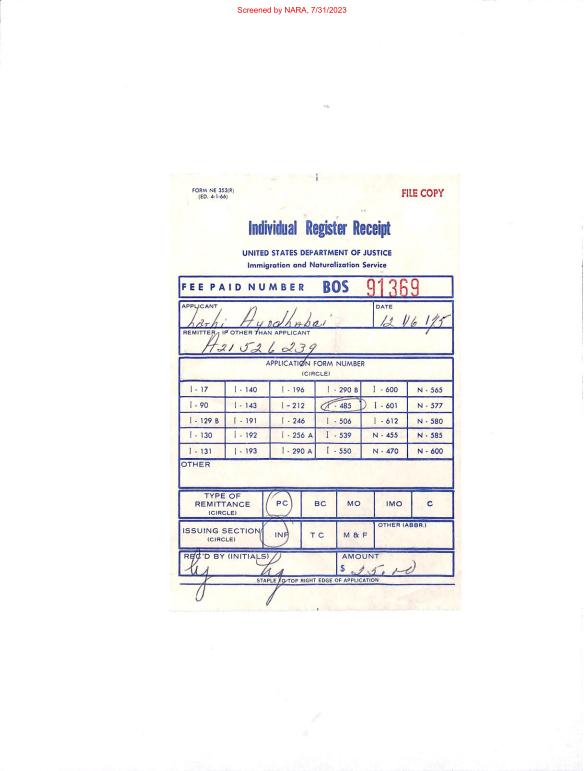 Screened by NARA, 7/31/2023
FORM NE 353(R)
(ED. 4-1-66)
FILE COPY
Individual Register Receipt
UNITED STATES DEPARTMENT OF JUSTICE
Immigration and Naturalization Service
FEE PAID NUMBER BOS 91369
APPLICANT DATE
Ayodhabai
REMITTER, IF OTHER THAN APPLICANT
A21 526 239
APPLICATION FORM NUMBER
(CIRCLE)
I - 17 I - 140 I - 196 I - 290 B I - 600 N - 565
I - 90 I - 143 I - 212 I - 485 I - 601 N - 577
I - 129 B I - 191 I - 246 I - 506 I - 612 N - 580
I - 130 I - 192 I - 256 A I - 539 N - 455 N - 585
I - 131 I - 193 I - 290 A I - 550 N - 470 N - 600
OTHER
TYPE OF REMITTANCE (CIRCLE) PC BC MO IMO C
ISSUING SECTION (CIRCLE) INF T C M & F OTHER (ABBR.)
REC'D BY (INITIALS) AMOUNT
$ 25.00
STAPLE TO TOP RIGHT EDGE OF APPLICATION